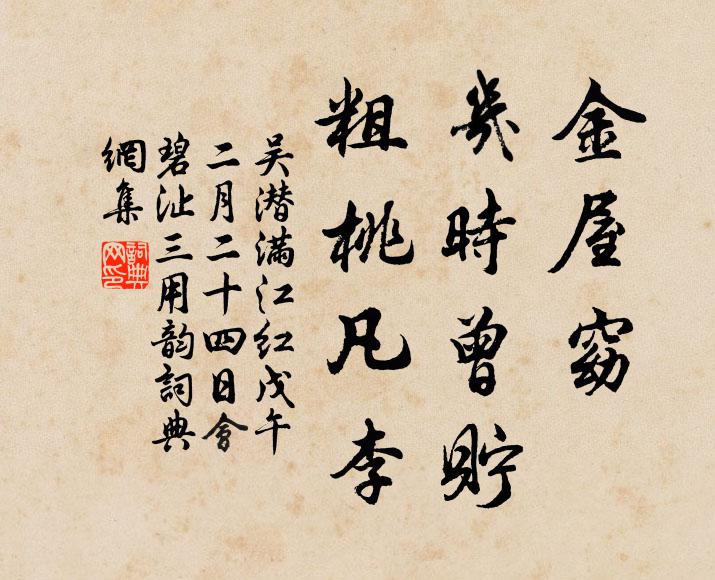 金屋窈
幾時曾貯
粗桃凡李
吴潜滿江红戊午
二月二十四日會
碧沚三用韵詞典
網集
詞典網印